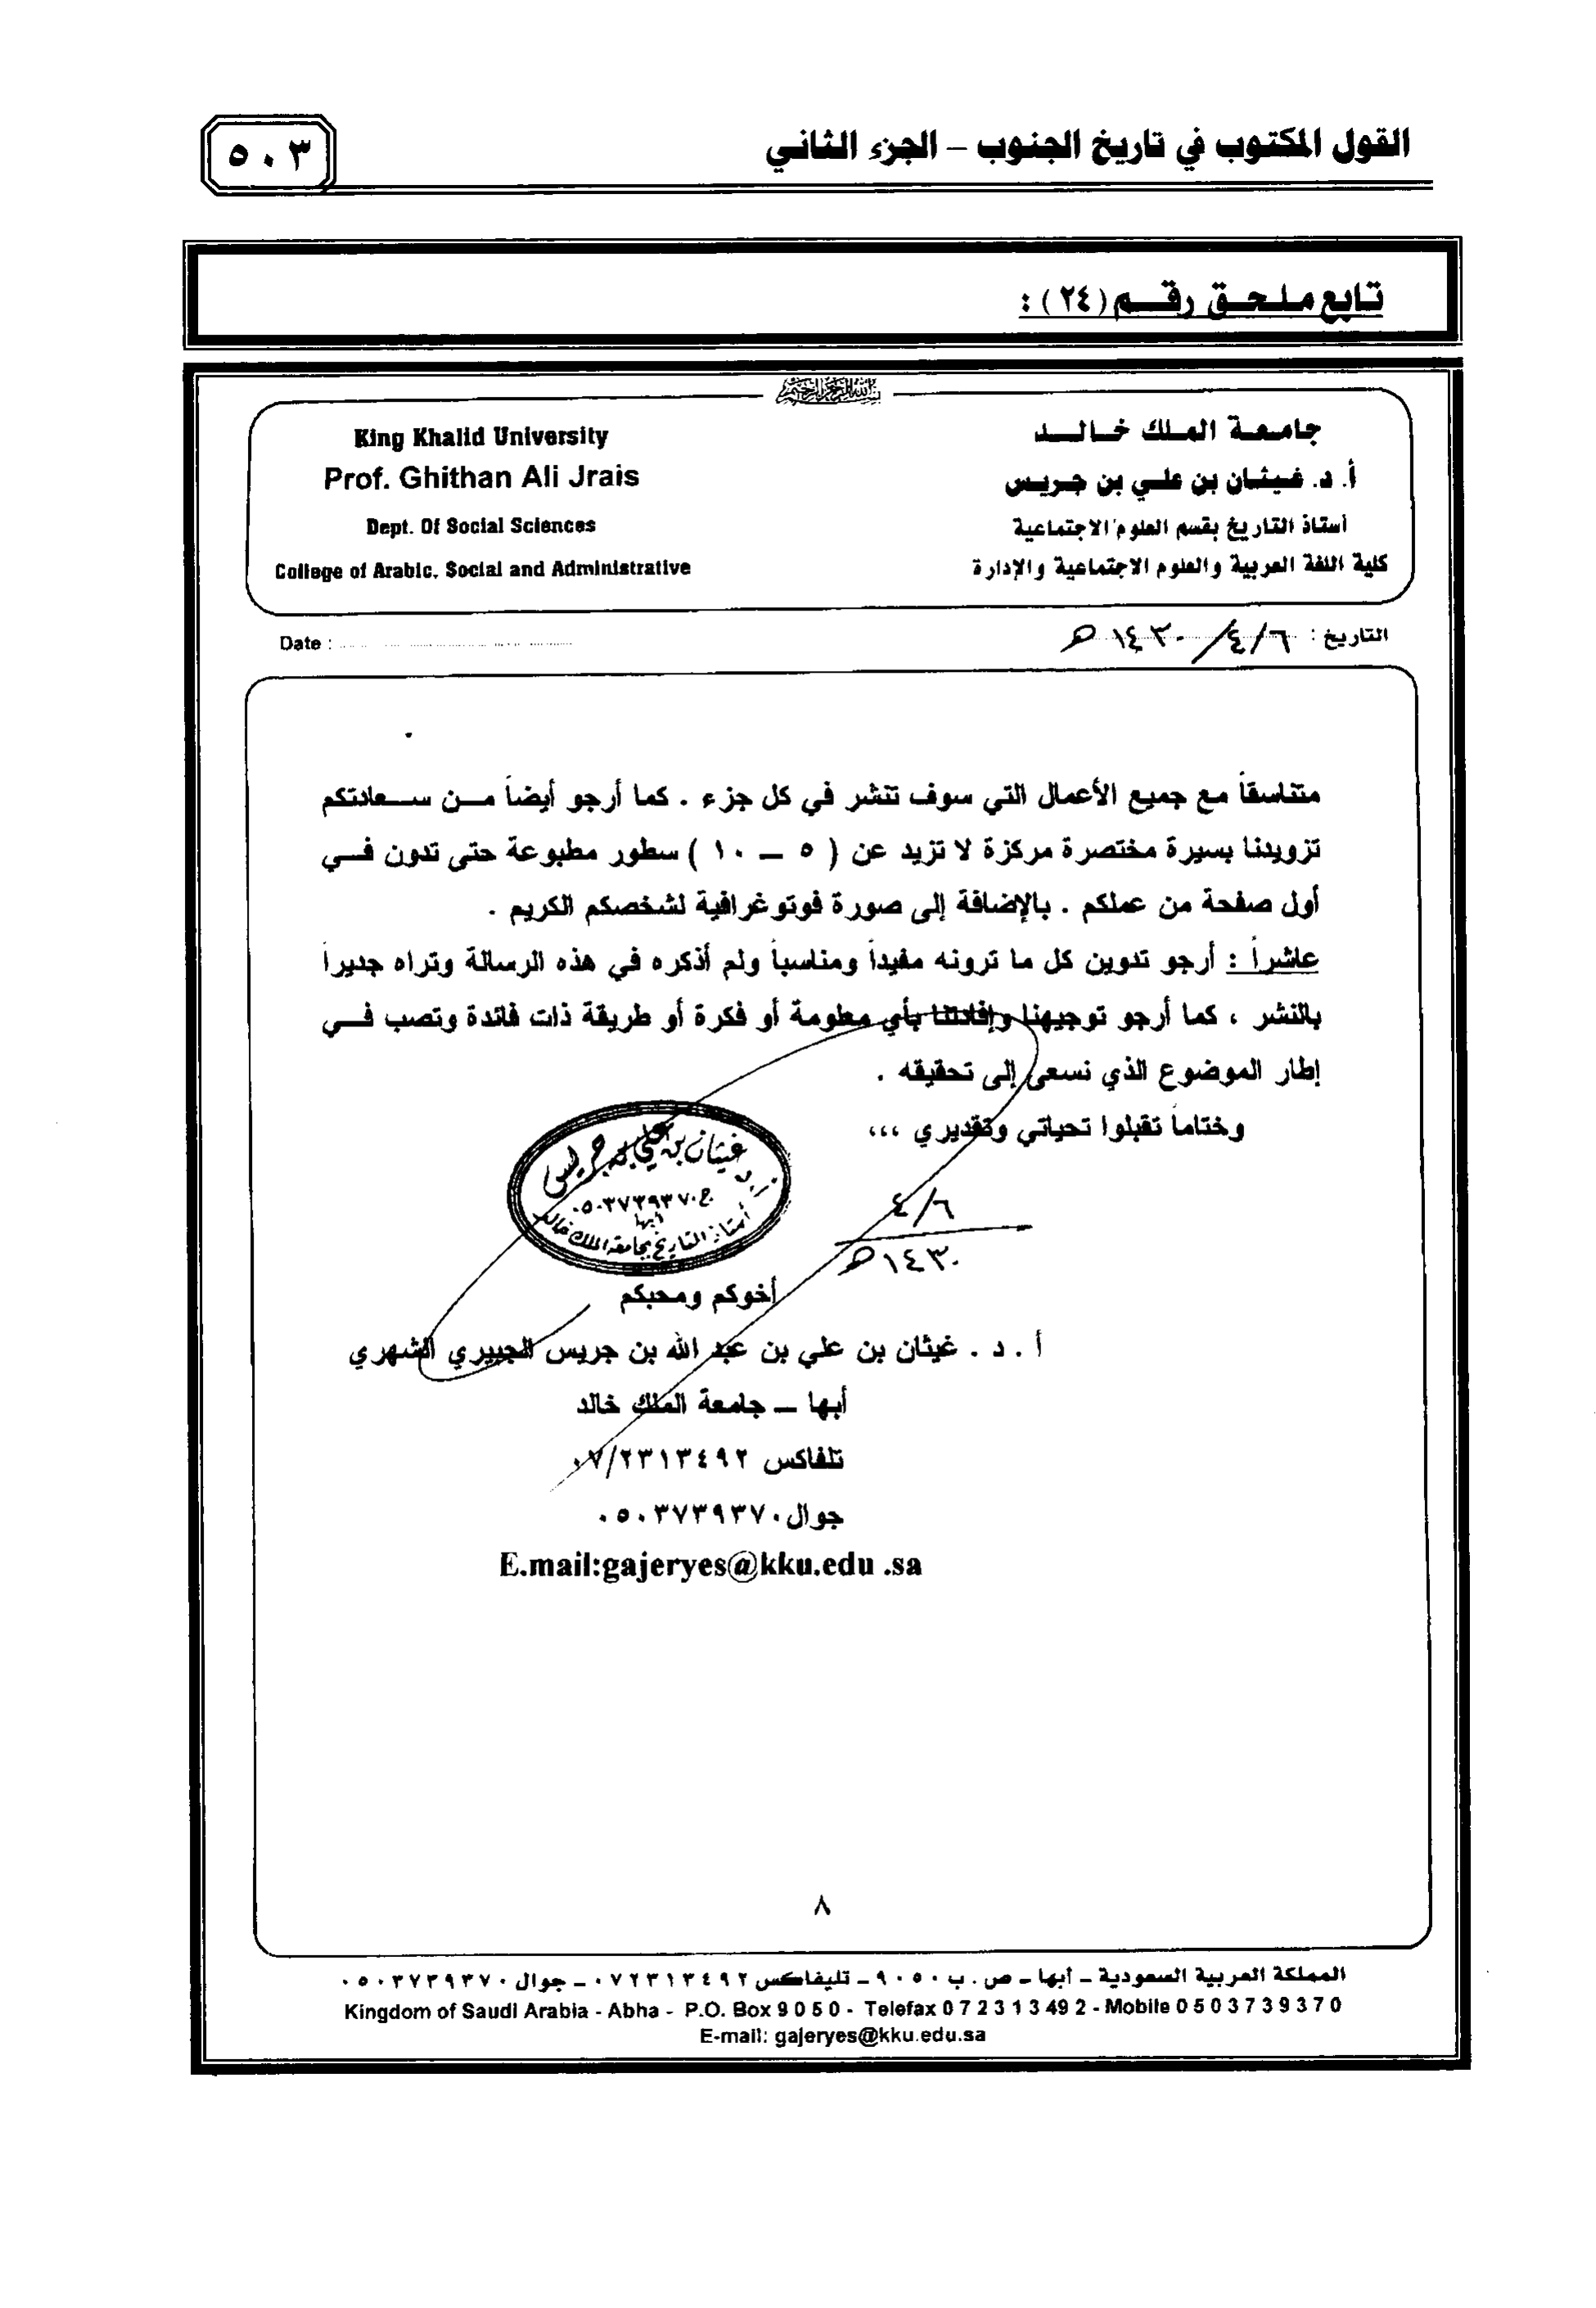 القول المكتوب في تاريخ الجنوب – الجزء الثاني
٥٠٣
تابع ملحق رقم (٢٤) :
بسم الله الرحمن الرحيم
جامعة الملك خالد
أ. د. غيثان بن علي بن جريس
أستاذ التاريخ بقسم العلوم الاجتماعية
كلية اللغة العربية والعلوم الاجتماعية والإدارة
King Khalid University
Prof. Ghithan Ali Jrais
Dept. Of Social Sciences
College of Arabic, Social and Administrative
التاريخ : ٦/٤/١٤٣٠هـ
Date :
متناسقاً مع جميع الأعمال التي سوف تنشر في كل جزء . كما أرجو أيضاً من سعادتكم
تزويدنا بسيرة مختصرة مركزة لا تزيد عن ( ٥ – ١٠ ) سطور مطبوعة حتى تدون في
أول صفحة من عملكم . بالإضافة إلى صورة فوتوغرافية لشخصكم الكريم .
عاشراً : أرجو تدوين كل ما ترونه مفيداً ومناسباً ولم أذكره في هذه الرسالة وتراه جديراً
بالنشر ، كما أرجو توجيهنا وإفادتنا بأي معلومة أو فكرة أو طريقة ذات فائدة وتصب في
إطار الموضوع الذي نسعى إلى تحقيقه .
وختاماً تقبلوا تحياتي وتقديري ،،،
أ.د غيثان بن علي بن جريس
ج ٠٥٠٣٧٣٩٣٧٠
أبها
أستاذ التاريخ بجامعة الملك خالد
٦/٤
١٤٣٠هـ
أخوكم ومحبكم
أ . د . غيثان بن علي بن عبد الله بن جريس الجبيري الشهري
أبها – جامعة الملك خالد
تلفاكس ٠٧/٢٣١٣٤٩٢
جوال٠٥٠٣٧٣٩٣٧٠
E.mail:gajeryes@kku.edu .sa
٨
المملكة العربية السعودية – أبها – ص . ب ٩٠٥٠ – تليفاكس ٠٧٢٣١٣٤٩٢ – جوال ٠٥٠٣٧٣٩٣٧٠
Kingdom of Saudi Arabia - Abha - P.O. Box 9 0 5 0 - Telefax 0 7 2 3 1 3 49 2 - Mobile 0 5 0 3 7 3 9 3 7 0
E-mail: gajeryes@kku.edu.sa